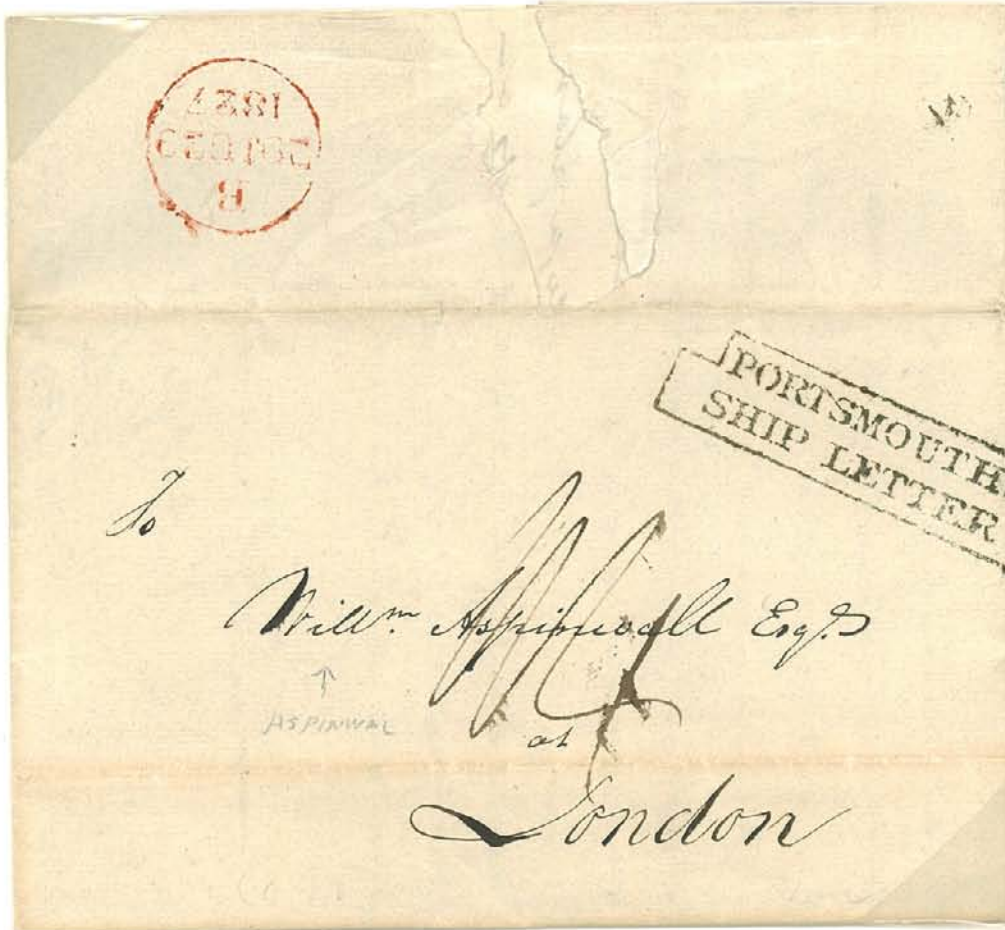 B
1827
PORTSMOUTH
SHIP LETTER
To
Willm. Aspinwall Esqr.
ASPINWAL
at
London